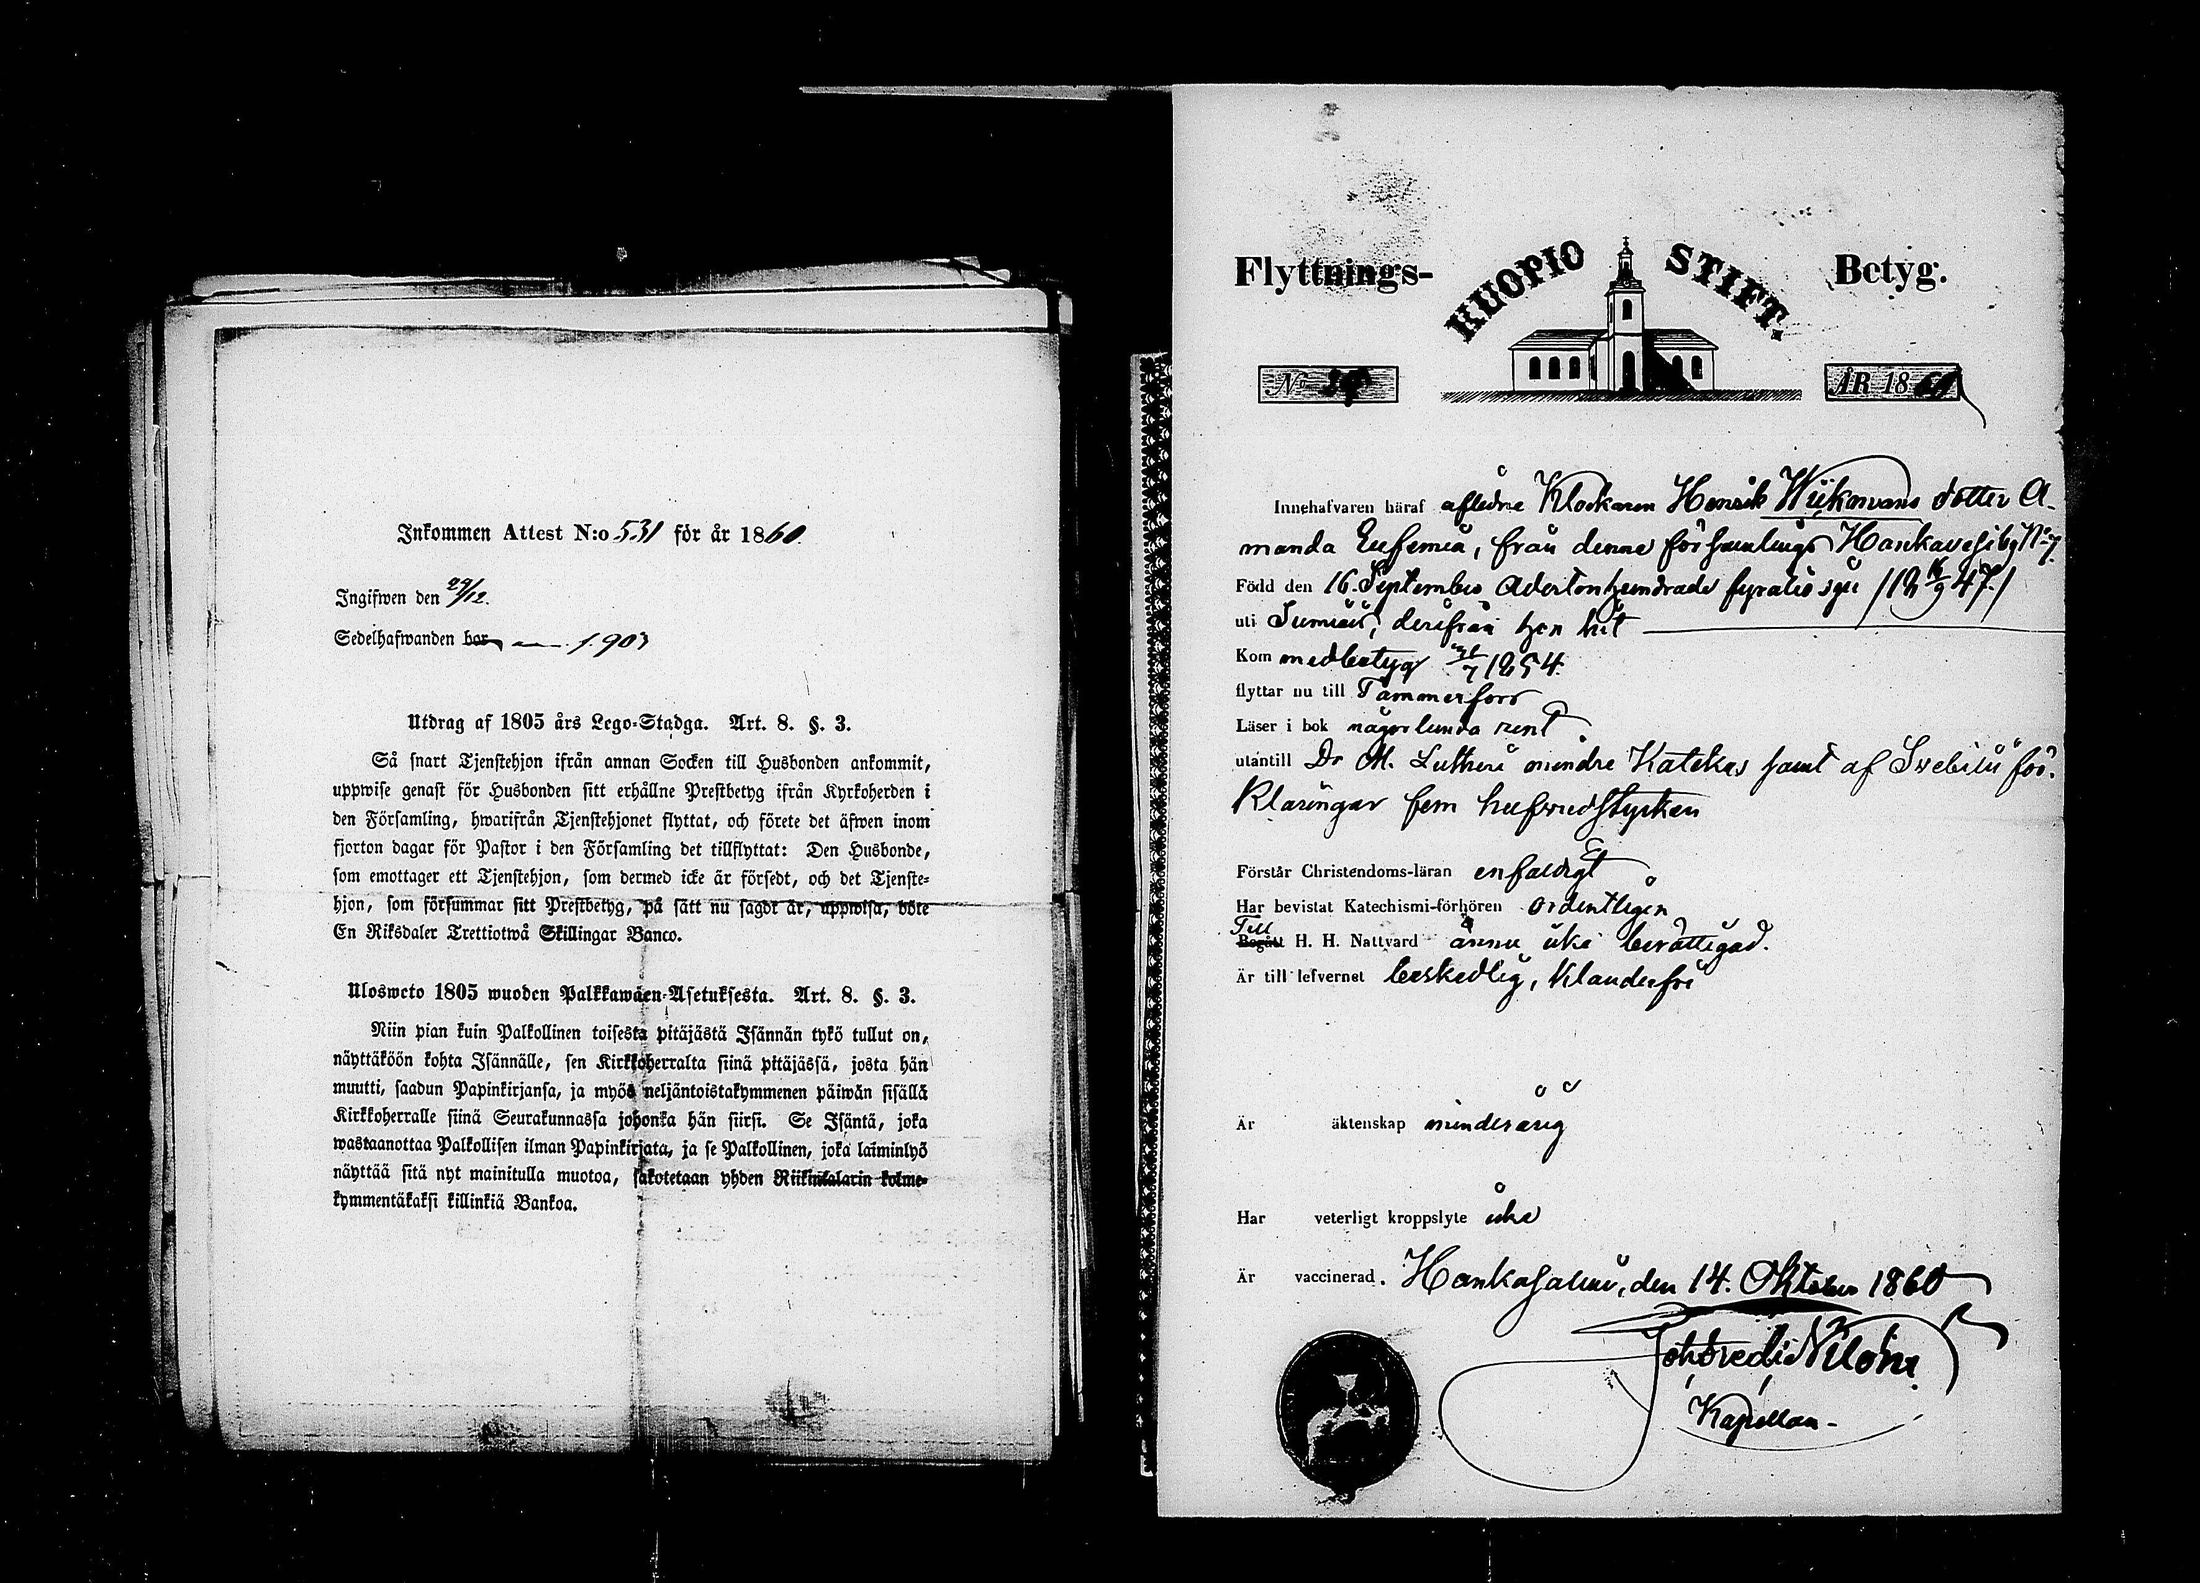 Inkommen Attest N:o 531 för år 1860.
Ingifwen den 29/12.
Sedelhafwanden bor
Utdrag af 1805 års Lego-Stadga. Art. 8. §. 3.
Så snart Tjenstehjon ifrån annan Socken till Husbonden ankommit,
uppwise genast för Husbonden sitt erhållne Prestbetyg ifrån Kyrkoherden i
den Församling, hwarifrån Tjenstehjonet flyttat, och förete det äfwen inom
fjorton dagar för Pastor i den Församling det tillflyttat: Den Husbonde,
som emottager ett Tjenstehjon, som dermed icke är försedt, och det Tjenste-
hjon, som försummar sitt Prestbetyg, på sätt nu sagdt är, uppwisa, böte
En Riksdaler Trettiotwå Skillingar Banco.
Ulosweto 1805 wuoden Palkkawäen-Asetuksesta. Art. 8. §. 3.
Niin pian kuin Palkollinen toisesta pitäjästä Isännän tykö tullut on,
näyttäköön kohta Isännälle, sen Kirkkoherralta siinä pitäjässä, josta hän
muutti, saadun Papinkirjansa, ja myös neljäntoistakymmenen päiwän sisällä
Kirkkoherralle siinä Seurakunnassa johonka hän siirsi. Se Isäntä, joka
wastaanottaa Palkollisen ilman Papinkirjata, ja se Palkollinen, joka laiminlyö
näyttää sitä nyt mainitulla muotoa, sakotetaan yhden Riikintalarin kolme-
kymmentäkaksi killinkiä Bankoa.
Flyttnings- KUOPIO STIFT. Betyg.
No
ÅR 1860
Innehafvaren häraf aflidne Klockaren Henrik Wiikmans dotter A-
manda Eufemia, från denne församlings Hankavesi by No 7.
Född den 16. September Adertonhundrade fyratio sju /18 16/9 47./
uti Sumiais, derifrån hon hit
Kom med betyg 1854.
flyttar nu till Tammerfors
Läser i bok någorlunda rent.
utantill Dr M. Lutheri mindre Katekes samt af Svebilii för-
klaringar fem hufvudstycken
Förstår Christendoms-läran enfaldigt
Har bevistat Katechismi-förhören ordentligen
Till
Begått H. H. Nattvard ännu icke berättigad.
Är till lefvernet beskedlig, klanderfri
Är äktenskap minderårig
Har veterligt kroppslyte icke
Är vaccinerad. Hankasalmi, den 14. Oktober 1860
Kapellan-